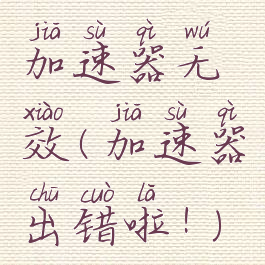 jiā sù qì wú
加速器无
xiào jiā sù qì
效(加速器
chū cuò lā
出错啦!)